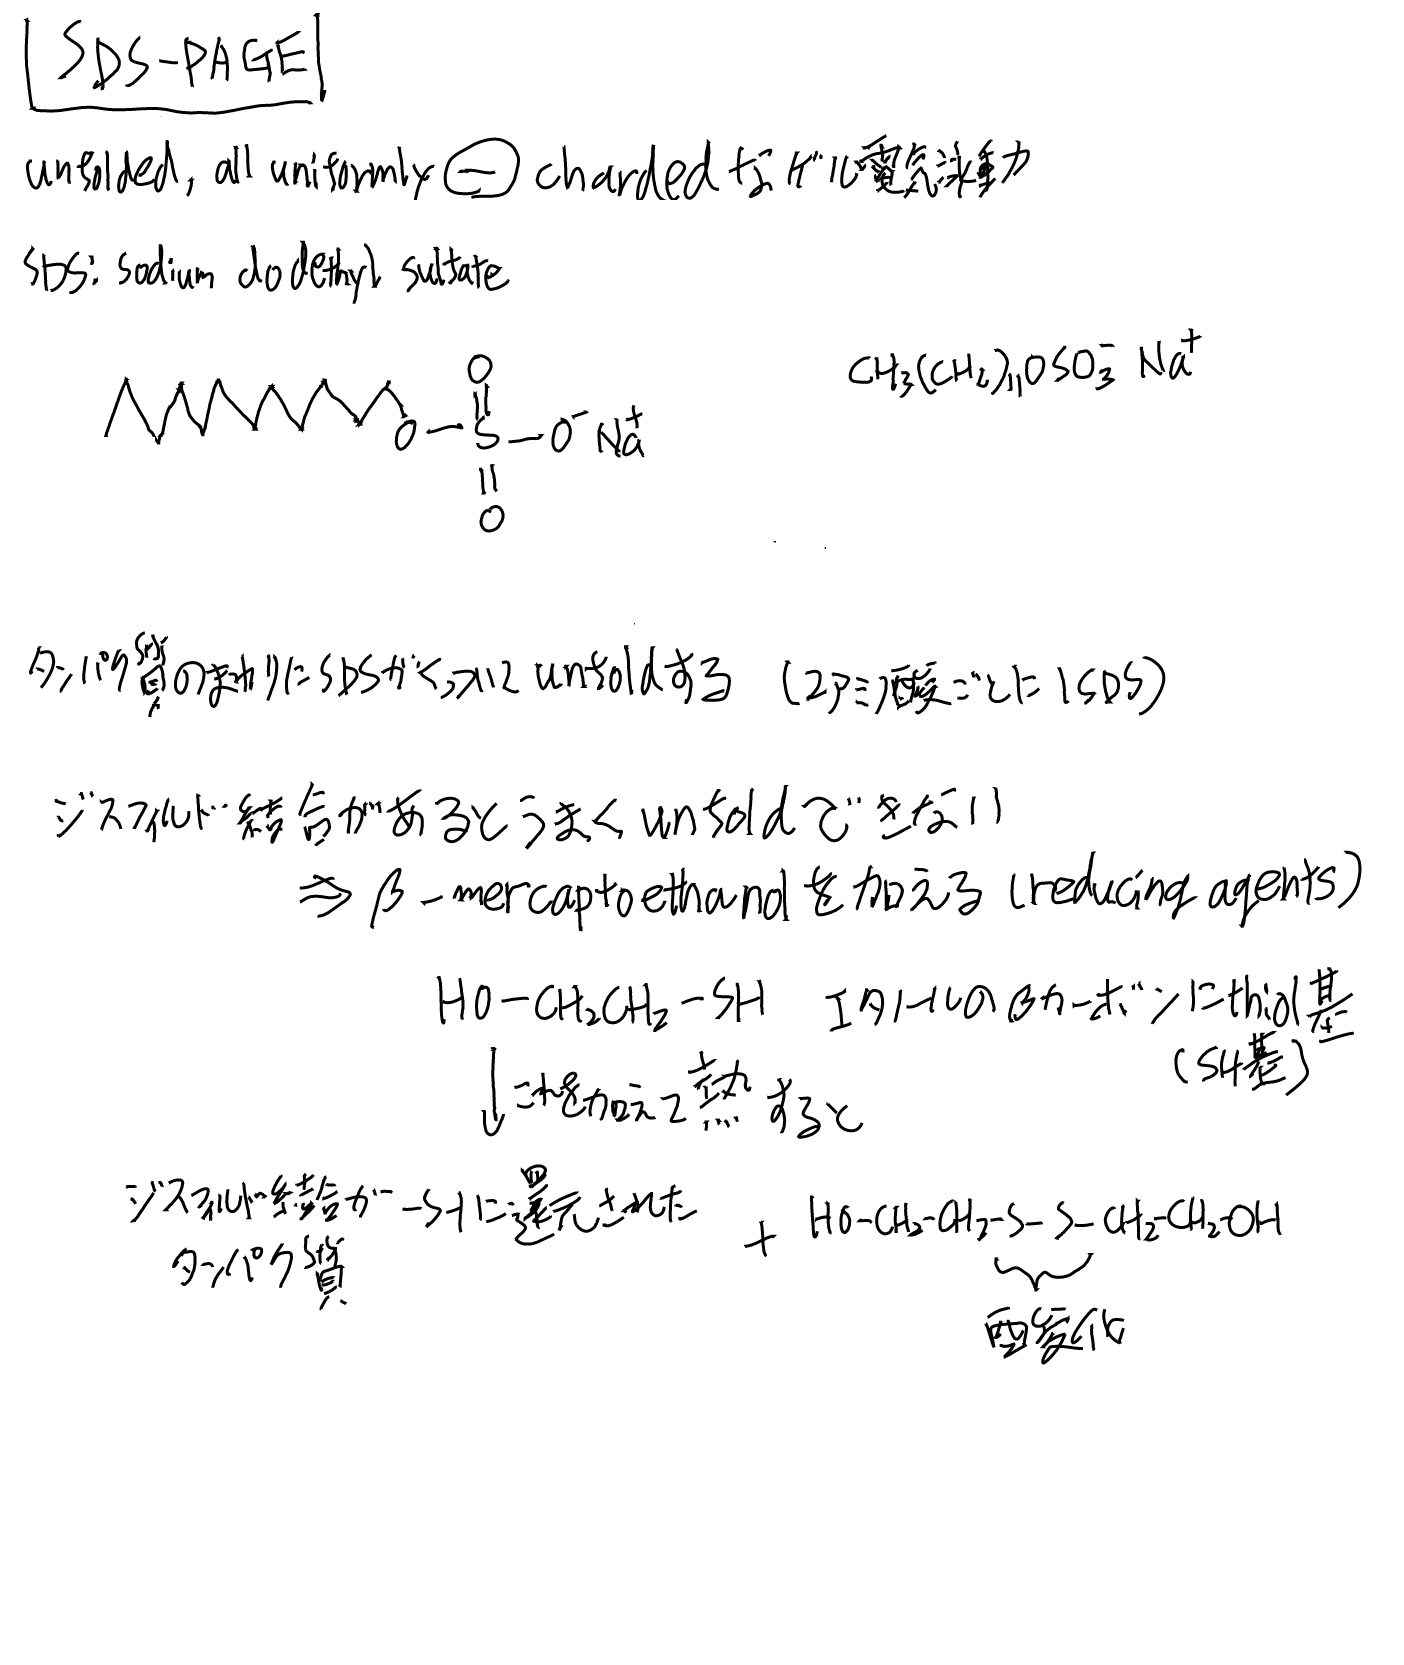 SDS-PAGE
unfolded, all uniformly ⊖ charded なゲル電気泳動
SDS: sodium dodethyl sulfate
CH3(CH2)11OSO3- Na+
O
O-S-O- Na+
O
タンパク質のまわりにSDSがくっついて unfoldする (2アミノ酸ごとに1SDS)
ジスフィルド結合があるとうまく unfoldできない
⇒ β-mercaptoethanolを加える (reducing agents)
HO-CH2CH2-SH エタノールのβカーボンにthiol基
(SH基)
↓これを加えて熱すると
ジスフィルド結合が-SHに還元された
タンパク質
+ HO-CH2-CH2-S-S-CH2-CH2-OH
酸化